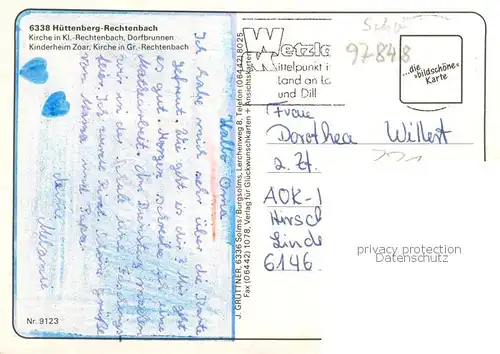 6338 Hüttenberg-Rechtenbach
Kirche in Kl.-Rechtenbach, Dorfbrunnen
Kinderheim Zoar, Kirche in Gr.-Rechtenbach
Hallo Oma
Ich habe mich sehr über die Karte
gefreut. Wie geht es dir? Mir geht
es gut. Morgen schreibe ich eine
Mathearbeit. Am Dienstag machen
wir in der Schule
Grüße
von Mama und Papa
deine
Nr. 9123
J. GRÜTTNER, 6336 Solms/Burgsolms, Lerchenweg 8, Telefon (06442) 8025
Fax (06442) 1078, Verlag für Glückwunschkarten + Ansichtskarten
Wetzla
Mittelpunkt i
land an La
und Dill
97848
...die
»bildschöne«
Karte
Frau
Dorothea Willert
z. Zt.
AOK-
Hirsch
Linde
6146
privacy protection
Datenschutz